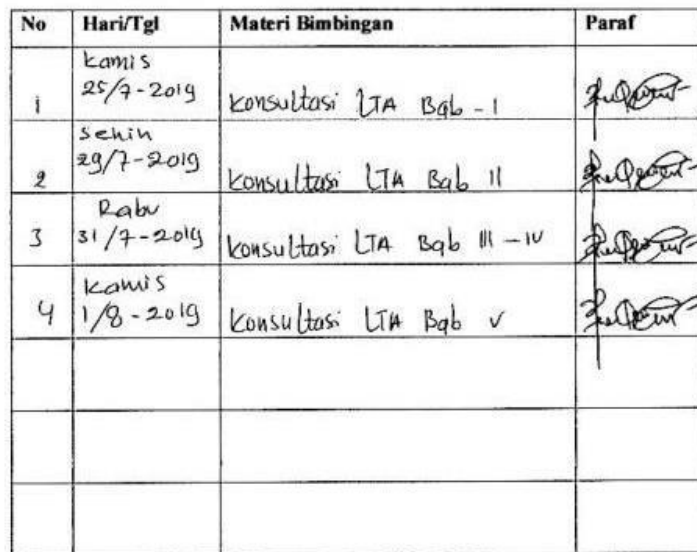 No Hari/Tgl Materi Bimbingan Paraf
Kamis
1 25/7-2019 Konsultasi LTA Bab - I
Senin
2 29/7-2019 Konsultasi LTA Bab II
Rabu
3 31/7-2019 Konsultasi LTA Bab III - IV
Kamis
4 1/8-2019 Konsultasi LTA Bab V